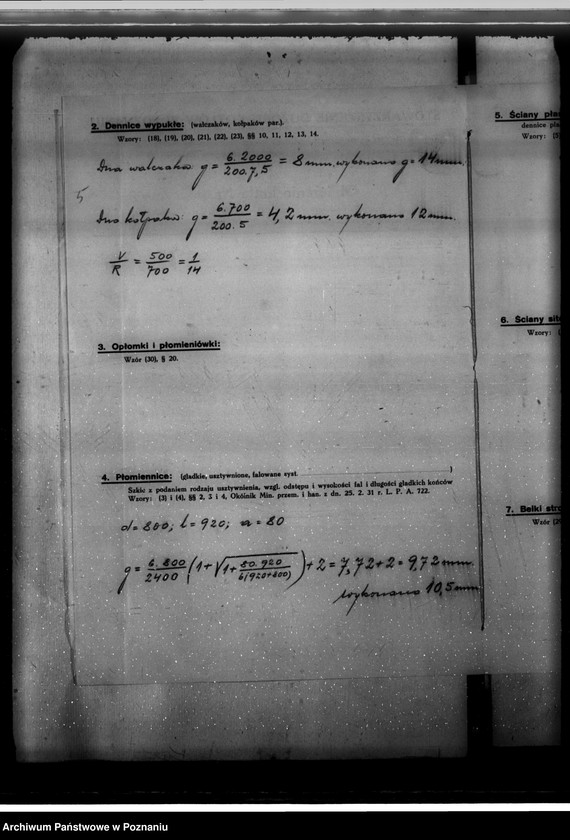 2. Dennice wypukłe: (walczaków, kołpaków par.).
Wzory: (18), (19), (20), (21), (22), (23), §§ 10, 11, 12, 13, 14.
Dna walczaka g = 6.2000 / 200.7,5 = 8 mm. wykonano g = 14 mm.
5
Dno kołpaka: g = 6.700 / 200.5 = 4,2 mm. wykonano 12 mm.
V / R = 500 / 700 = 1 / 14
3. Opłomki i płomieniówki:
Wzór (30), § 20.
4. Płomiennice: (gładkie, usztywnione, falowane syst. )
Szkic z podaniem rodzaju usztywnienia, wzgl. odstępu i wysokości fal i długości gładkich końców
Wzory: (3) i (4), §§ 2, 3 i 4, Okólnik Min. przem. i han. z dn. 25. 2. 31 r. L. P. A. 722.
d = 800; l = 920; a = 80
g = 6.800 / 2400 (1 + √(1 + 80.920 / 6(920+800))) + 2 = 7,72 + 2 = 9,72 mm.
wykonano 10,5 mm
5. Ściany
dennice
Wzory:
6. Ściany
Wzory:
7. Belki
Wzór
Archiwum Państwowe w Poznaniu